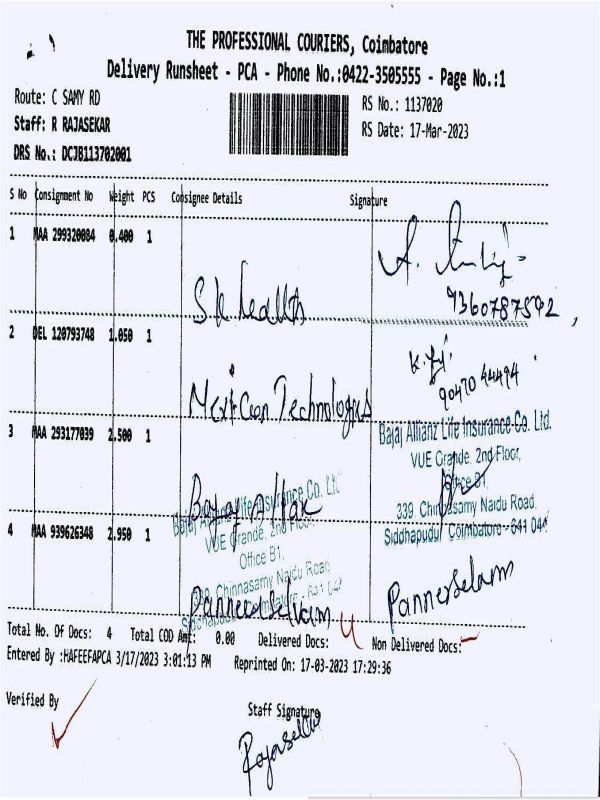 THE PROFESSIONAL COURIERS, Coimbatore
Delivery Runsheet - PCA - Phone No.:0422-3505555 - Page No.:1
Route: C SAMY RD
RS No.: 1137020
Staff: R RAJASEKAR
RS Date: 17-Mar-2023
DRS No.: DCJB113702001
S No Consignment No Weight PCS Consignee Details Signature
1 MAA 299320084 0.400 1
Sk health
9360787592,
2 DEL 120793748 1.050 1
90470 44494
Technologies
3 MAA 293177039 2.500 1
Bajaj Allianz Life Insurance Co. Ltd.
VUE Grande, 2nd Floor,
Office B1,
339, Chinnasamy Naidu Road,
Siddhapudur Coimbatore - 641 044
Bajaj Allianz Life Insurance Co. Ltd
VUE Grande, 2nd Floor,
Office B1,
339, Chinnasamy Naidu Road
4 MAA 939626348 2.950 1
Panneerselvam
Pannerselvam
Total No. Of Docs: 4 Total COD Amt: 0.00 Delivered Docs: 4 Non Delivered Docs: -
Entered By :HAFEEFAPCA 3/17/2023 3:01:13 PM Reprinted On: 17-03-2023 17:29:36
Verified By
Staff Signature